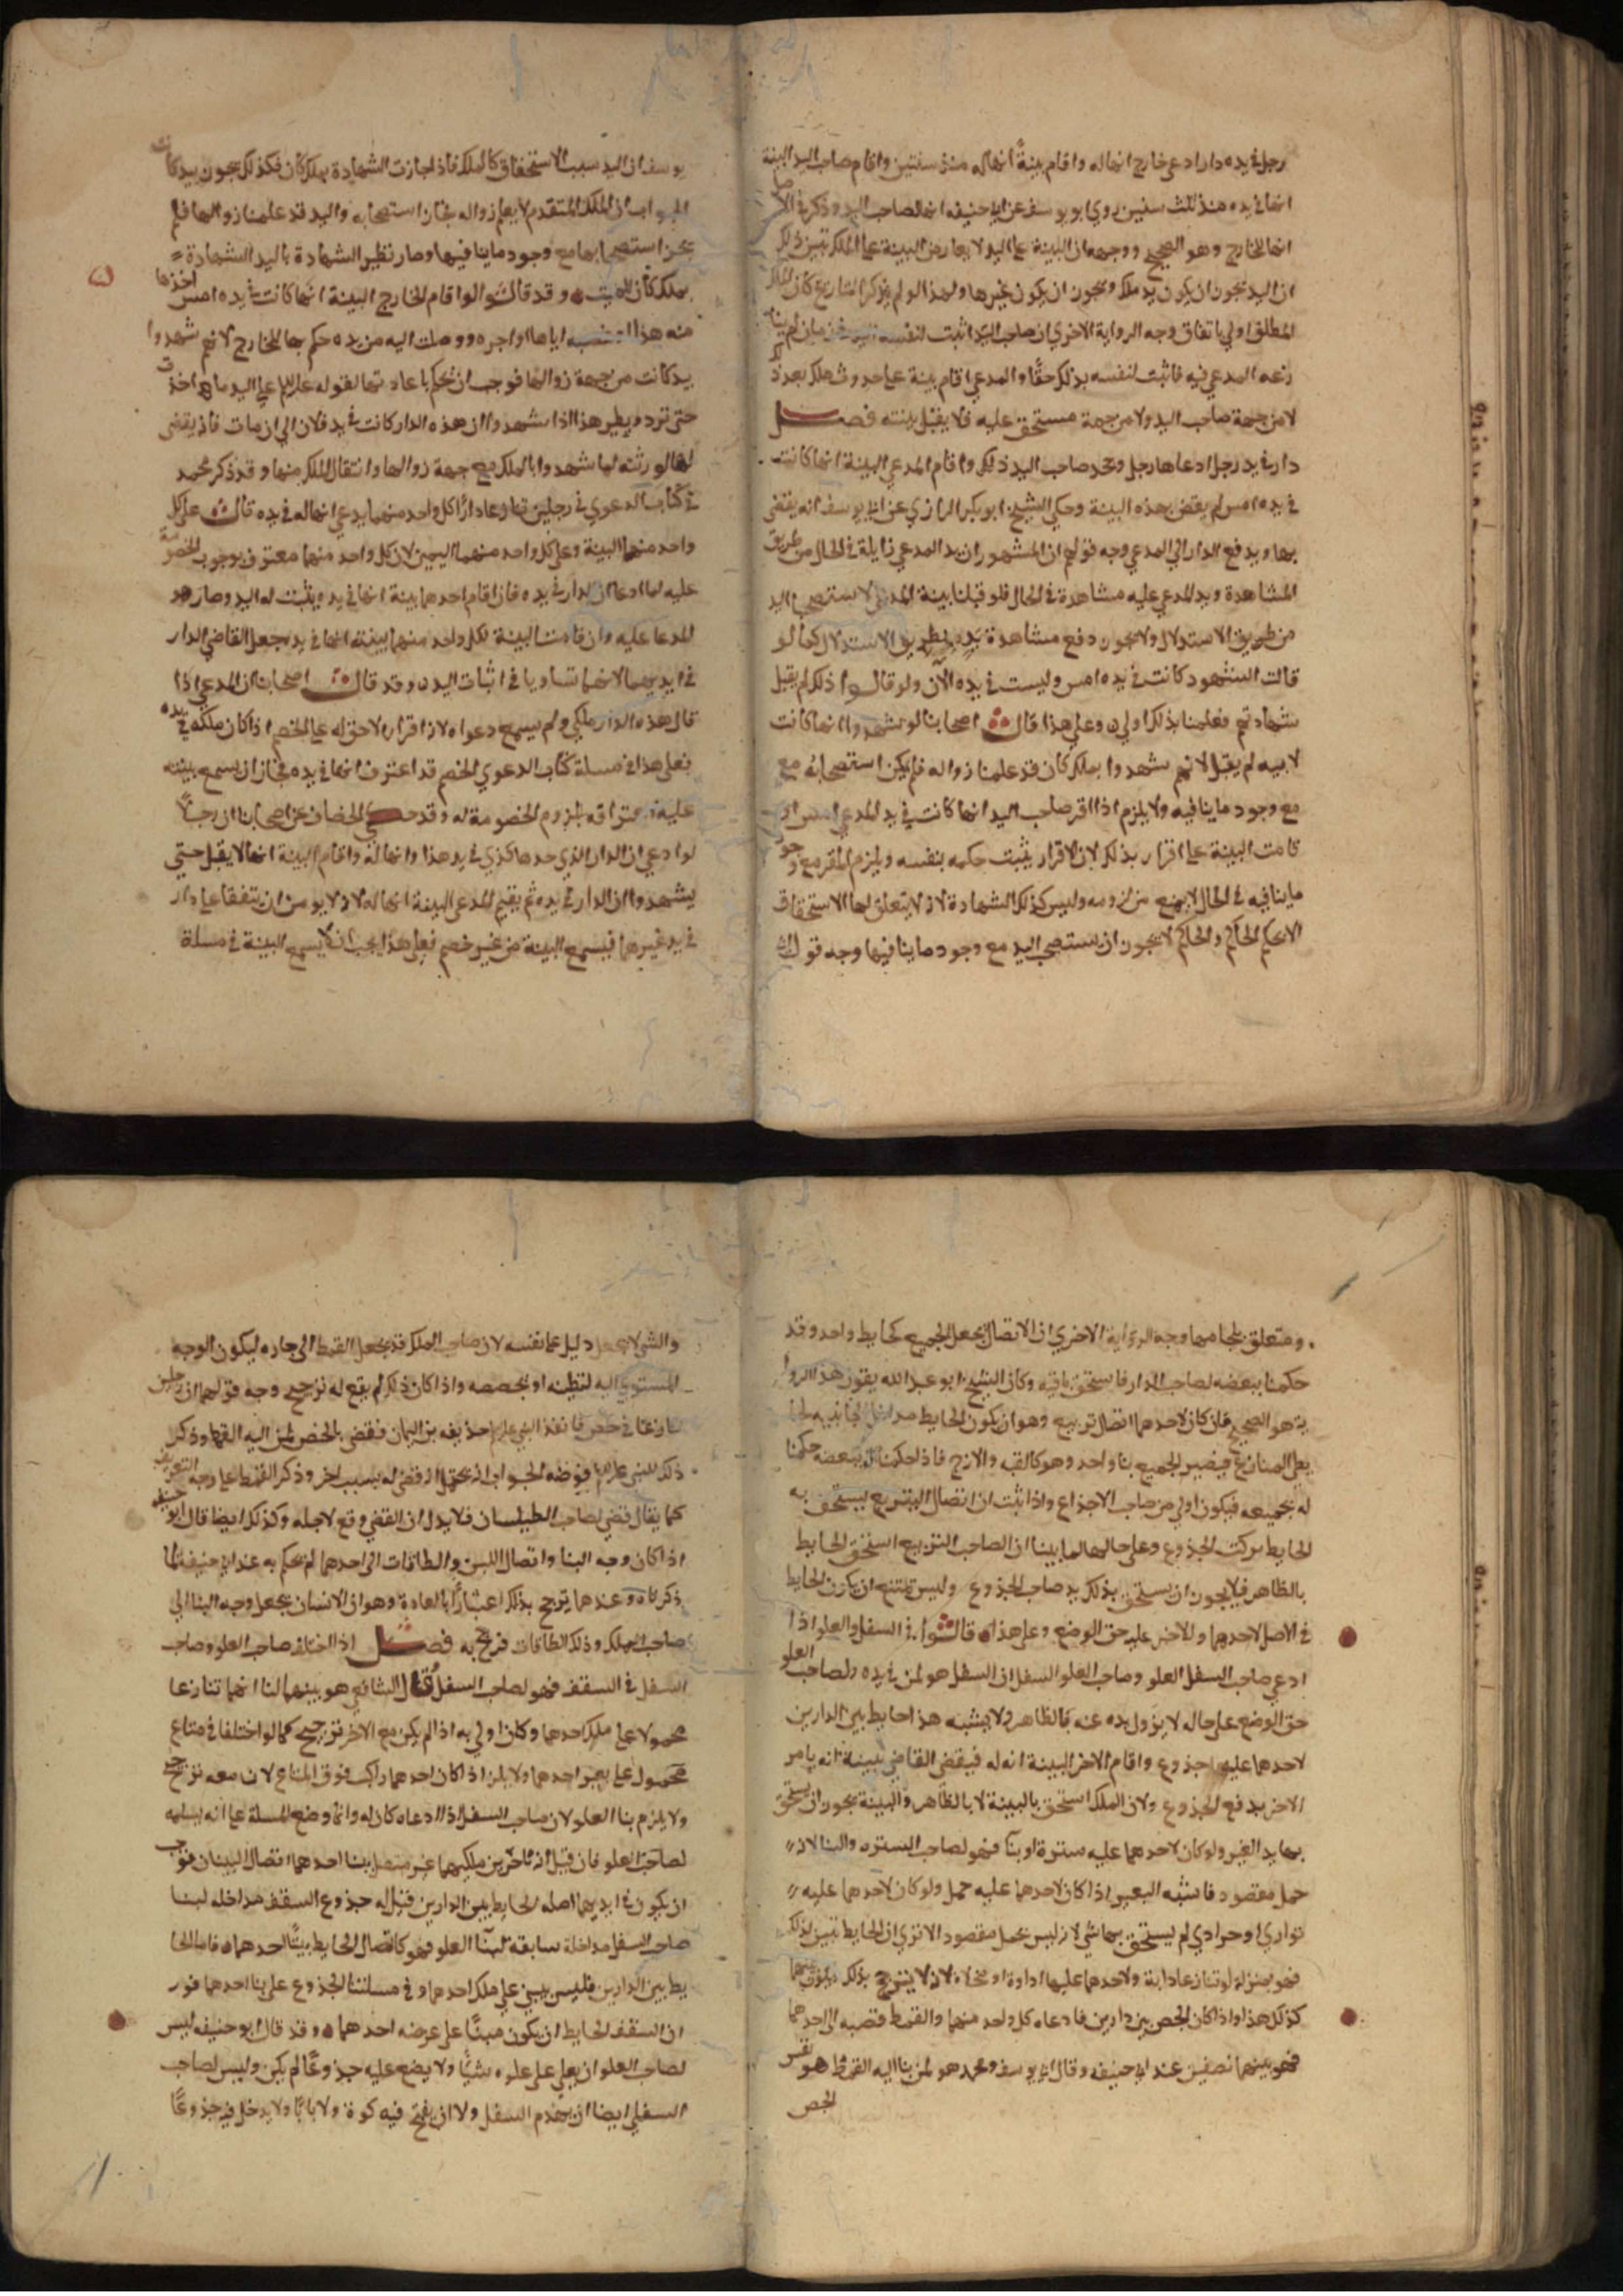 رجل في يده دار ادعى خارج انها له واقام بينةً انها له منذ سنتين واقام صاحب اليد البينة
انها في يده منذ ثلث سنين روي ابو يوسف عن ابي حنيفه انها لصاحب اليد وذكر في الاصل
انها للخارج وهو الصحيح ووجهه ان البينة على اليد لا يعارض البينة على الملك تبين ذلك
ان اليد يجوز ان يكون يد ملك ويجوز ان يكون غيرها ولهذا لو لم يذكر التاريخ كان الملك
المطلق اولي باتفاق وجه الرواية الاخري ان صاحب اليد اثبت لنفسه في زمان لم
المدعي فيه فاثبت لنفسه بذلك حقًا والمدعي اقام بينة على حدوث ملك بعد ذلك
لا من جهة صاحب اليد ولا من جهة مستحق عليه فلا يقبل بينته فصل
دار في يد رجل ادعاها رجل وجحد صاحب اليد ذلك واقام المدعي البينة انها كانت
في يده امس لم يقض بهذه البينة وحكي الشيخ ابو بكر الرازي عن ابي يوسف انه يقضى
بها ويدفع الدار الي المدعي وجه قولهم ان المشهور ان يد المدعي زايلة في الحال من طريق
المشاهدة ويد المدعي عليه مشاهدة في الحال فلو قبلنا بينة المدعي لاستصحاب اليد
من طريق الاستدلال ولا يجوز دفع مشاهدة يد بطريق الاستدلال كما لو
قالت الشهود كانت في يده امس وليست في يده الآن ولو قالوا ذلك لم يقبل
شهادتهم فعلمنا بذلك اولي وعلى هذا قال اصحابنا لو شهدوا انها كانت
لابيه لم يقبل لانهم شهدوا بملك كان قد علمنا زواله فلم يكن استصحابه مع
مع وجود ما ينافيه ولا يلزم اذا اقر صاحب اليد انها كانت في يد المدعي امس او
قامت البينة على اقراره بذلك لان الاقرار يثبت حكمه بنفسه ويلزم المقر مع وجود
ما ينافيه في الحال لا يمنع من لزومه وليس كذلك الشهادة لانه لا يتعلق بها الاستحقاق
الا بحكم الحاكم والحاكم لا يجوز ان يستصحب اليد مع وجود ما ينافيها وجه قول ابي
يوسف ان اليد سبب الاستحقاق كالملك فاذا جازت الشهادة بملك كان فكذلك يجوز بيد كانت
الجواب ان الملك المتقدم لا يعلم زواله فجاز استصحابه واليد قد علمنا زوالها فلم
يجز استصحابها مع وجود ما ينافيها وصار نظير الشهادة باليد الشهادة
بملك كان للميت وقد قالوا لو اقام الخارج البينة انها كانت في يده امس اخذها
منه هذا او غصبه اياها او اجره ووصلت اليه من يده حكم بها للخارج لانهم شهدوا
بيد كانت من جهة زوالها فوجب ان يحكم باعادتها لقوله على اليد ما اخذت
حتى ترد ونظير هذا اذا شهدوا ان هذه الدار كانت في يد فلان الي ان مات فانه يقضى
لها لورثته لما شهدوا بالملك مع جهة زوالها وانتقال الملك منها وقد ذكر محمد
في كتاب الدعوي في رجلين تنازعا دارًا كل واحد منهما يدعي انها له في يده قال على كل
واحد منهما البينة وعلى كل واحد منهما اليمين لان كل واحد منهما معترف بوجوب الخصومة
عليه لما ادعا ان الدار في يده فان اقام احدهما بينة انها في يده يثبت له اليد وصار هو
المدعا عليه وان قامت البينة لكل واحد منهما بينته انها في يده جعل القاضي الدار
في ايديهما لانهما تساويا في اثبات اليد وقد قال اصحابنا ان المدعي اذا
قال هذه الدار ملكي ولم يسمع دعواه لان اقراره لاحق له على الخصم اذا كان ملكه في يده
فعلى هذا في مسلة كتاب الدعوي الخصم قد اعترف انها في يده فجاز ان يسمع بينته
عليه واعترافه بلزوم الخصومة له وقد حكي الخصاف عن اصحابنا ان رجلًا
لو ادعي ان الدار الذي حدها كذي في يد هذا وانها له واقام البينة انها لا يقبل حتي
يشهدوا ان الدار في يده ثم يقيم المدعي البينة انها له لانه لا يومن ان يتفقا على دار
في يد غيرهما فيسمع البينة من غير خصم فعلى هذا يجب ان لا يسمع البينة في مسلة
ومتعلق وجه الرواية الاخري ان الاتصال يجعل الجميع كحايط واحد وقد
حكمنا ببعضه لصاحب الدار فاستحق باقيه وكان الشيخ ابو عبد الله يقول هذه الروا
ية هو الصحيح فان كان لاحدهما اتصال تربيع وهو ان يكون الحايط مداخل
على الصنايع فيصير الجميع بنا واحد وهو كالقبه والازج فاذا حكمنا له ببعضه حكمنا
له بجميعه فيكون اولي من صاحب الاجذاع واذا ثبت ان اتصال التربيع يستحق به
الحايط تركت الجذوع وعلى حالهما لما بينا ان الصاحب التربيع استحق الحايط
بالظاهر فلا يجوز ان يستحق بذلك يد صاحب الجذوع وليس يمتنع ان يكون الحايط
في الاصل لاحدهما وللاخر عليه حق الوضع وعلى هذا قالوا في السفل والعلو اذا
ادعي صاحب السفل العلو وصاحب العلو السفل ان السفل هو لمن في يده ولصاحب العلو
حق الوضع على حاله لا يزول يده عنه بالظاهر ولا يشبه هذا حايط بين الدارين
لاحدهما عليه جذوع واقام الاخر البينة انه له فيقضى القاضي ببينة انه يامر
الاخر بدفع الجذوع ولان الملك استحق بالبينة لا بالظاهر والبينة يجوز ان يستحق
بها يد الغير ولو كان لاحدهما عليه سترة او بنا فهو لصاحب السترة والبنا لانه
حمل مقصود فاشبه البعير اذا كان لاحدهما عليه حمل ولو كان لاحدهما عليه
بواري او حرادي لم يستحق بهما شي لانه ليس بحمل مقصود الا تري ان الحايط تبين لذلك
فهو بمنزلة لو تنازعا دابة ولاحدهما عليها اداوة او مخلاه لانه لا يترجح بذلك
كذلك هذا واذا كان الخص بين دارين فادعاه كل واحد منهما والقمط قصبه الي احدهما
فهو بينهما نصفين عند ابي حنيفه وقال ابو يوسف ومحمد هو لمن بنا اليه القمط هو نفس
الخص
والشي لا يجعل دليل على نفسه لان صاحب الملك قد يجعل القمط الى جاره ليكون الوجه
المستوي اليه لتطينه او تجصصه واذا كان ذلك لم يقع له ترجيح وجه قولهما ان رجلين
تنازعا في خص فانفذ النبي حذيفه بن اليمان فقضى بالخص لمن اليه القمط وذكر
ذلك للنبي فرضه الجواب انه يحتمل انه قضى له بسبب اخر وذكر القمط على وجه التعريف
كما يقال قضى لصاحب الطيلسان فلا يدل ان القضي وقع لاجله وكذلك ايضا قال ابو حنيفه
اذا كان وجه البنا واتصال اللبن والطاقات الى احدهما لم يحكم به عند ابي حنيفة لما
ذكرناه وعندهما يترجح بذلك اعتبارًا بالعادة وهو ان الانسان يجعل وجه البنا الي
صاحب الملك وذلك الطاقات فرجح به فصل اذا اختلف صاحب العلو وصاحب
السفل في السقف فهو لصاحب السفل وقال الشافعي هو بينهما لنا انهما تنازعا
محمولا على ملك احدهما وكان اولي به اذا لم يكن مع الاخر ترجيح كما لو اختلفا في متاع
محمول على بعير احدهما ولا يلزم اذا كان احدهما راكب فوق المتاع لان معه ترجيح
ولا يلزم بنا العلو لان صاحب السفل اذا ادعاه كان له وانما وضع المسلة على انه يسلمه
لصاحب العلو فان قيل انه تاخر بين ملكيهما غير متصل بنا احدهما اتصال البنيان فوجب
ان يكون في ايديهما اصله الحايط بين الدارين قيل له جذوع السقف مداخله لبنا
صاحب السفل مداخلة سابقه لبنا العلو فهو كاتصال الحايط ببنا احدهما فاما الحا
يط بين الدارين فليس يبني على ملك احدهما وفي مسلتنا الجذوع على بنا احدهما فور
ان السقف الحايط ان يكون مبنًا على عرضه احدهما وقد قال ابو حنيفه ليس
لصاحب العلو ان يعلي على علوه شيًا ولا يضع عليه جذوعًا لم يكن وليس لصاحب
السفل ايضا ان يهدم السفل ولا ان يفتح فيه كوة ولا بابًا ولا يدخل فيه جذوعًا